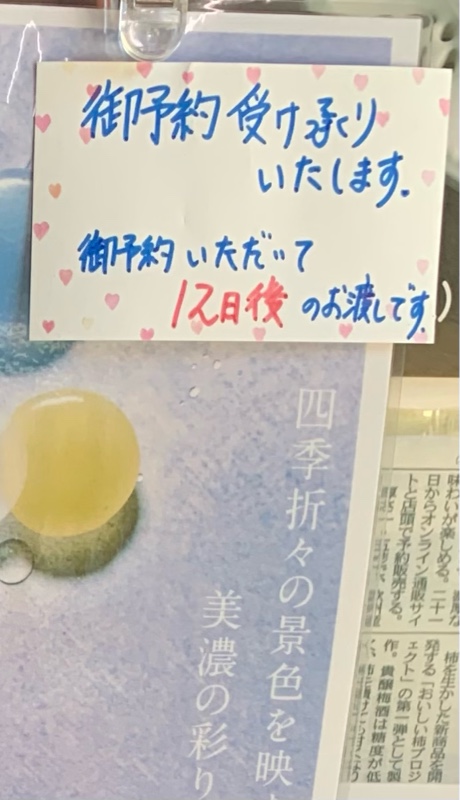 御予約受け承り
いたします.
御予約いただいて
12日後のお渡しです.
四季折々の景色を映
美濃の彩り
味わいが楽しめる。
日からオンライン通販サイ
トと店頭で予約販売する。
柿を生かした新商品を開
発する「おいしい柿プロジ
ェクト」の第一弾として製
作。貴醸梅酒は糖度が低